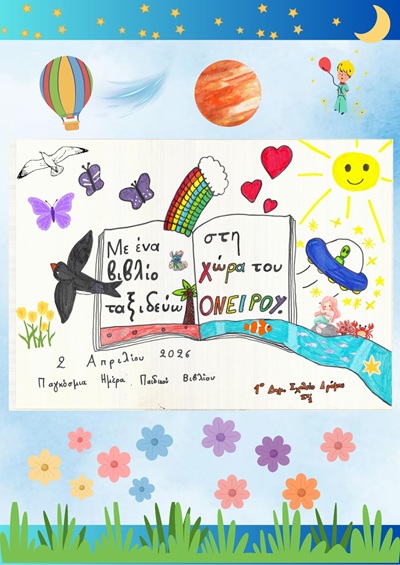 Με ένα
βιβλίο
ταξιδεύω
στη
χώρα του
ΟΝΕΙΡΟΥ.
2 Απριλίου 2026
Παγκόσμια Ημέρα Παιδικού Βιβλίου
1ο Δημ. Σχολείο Δράμας